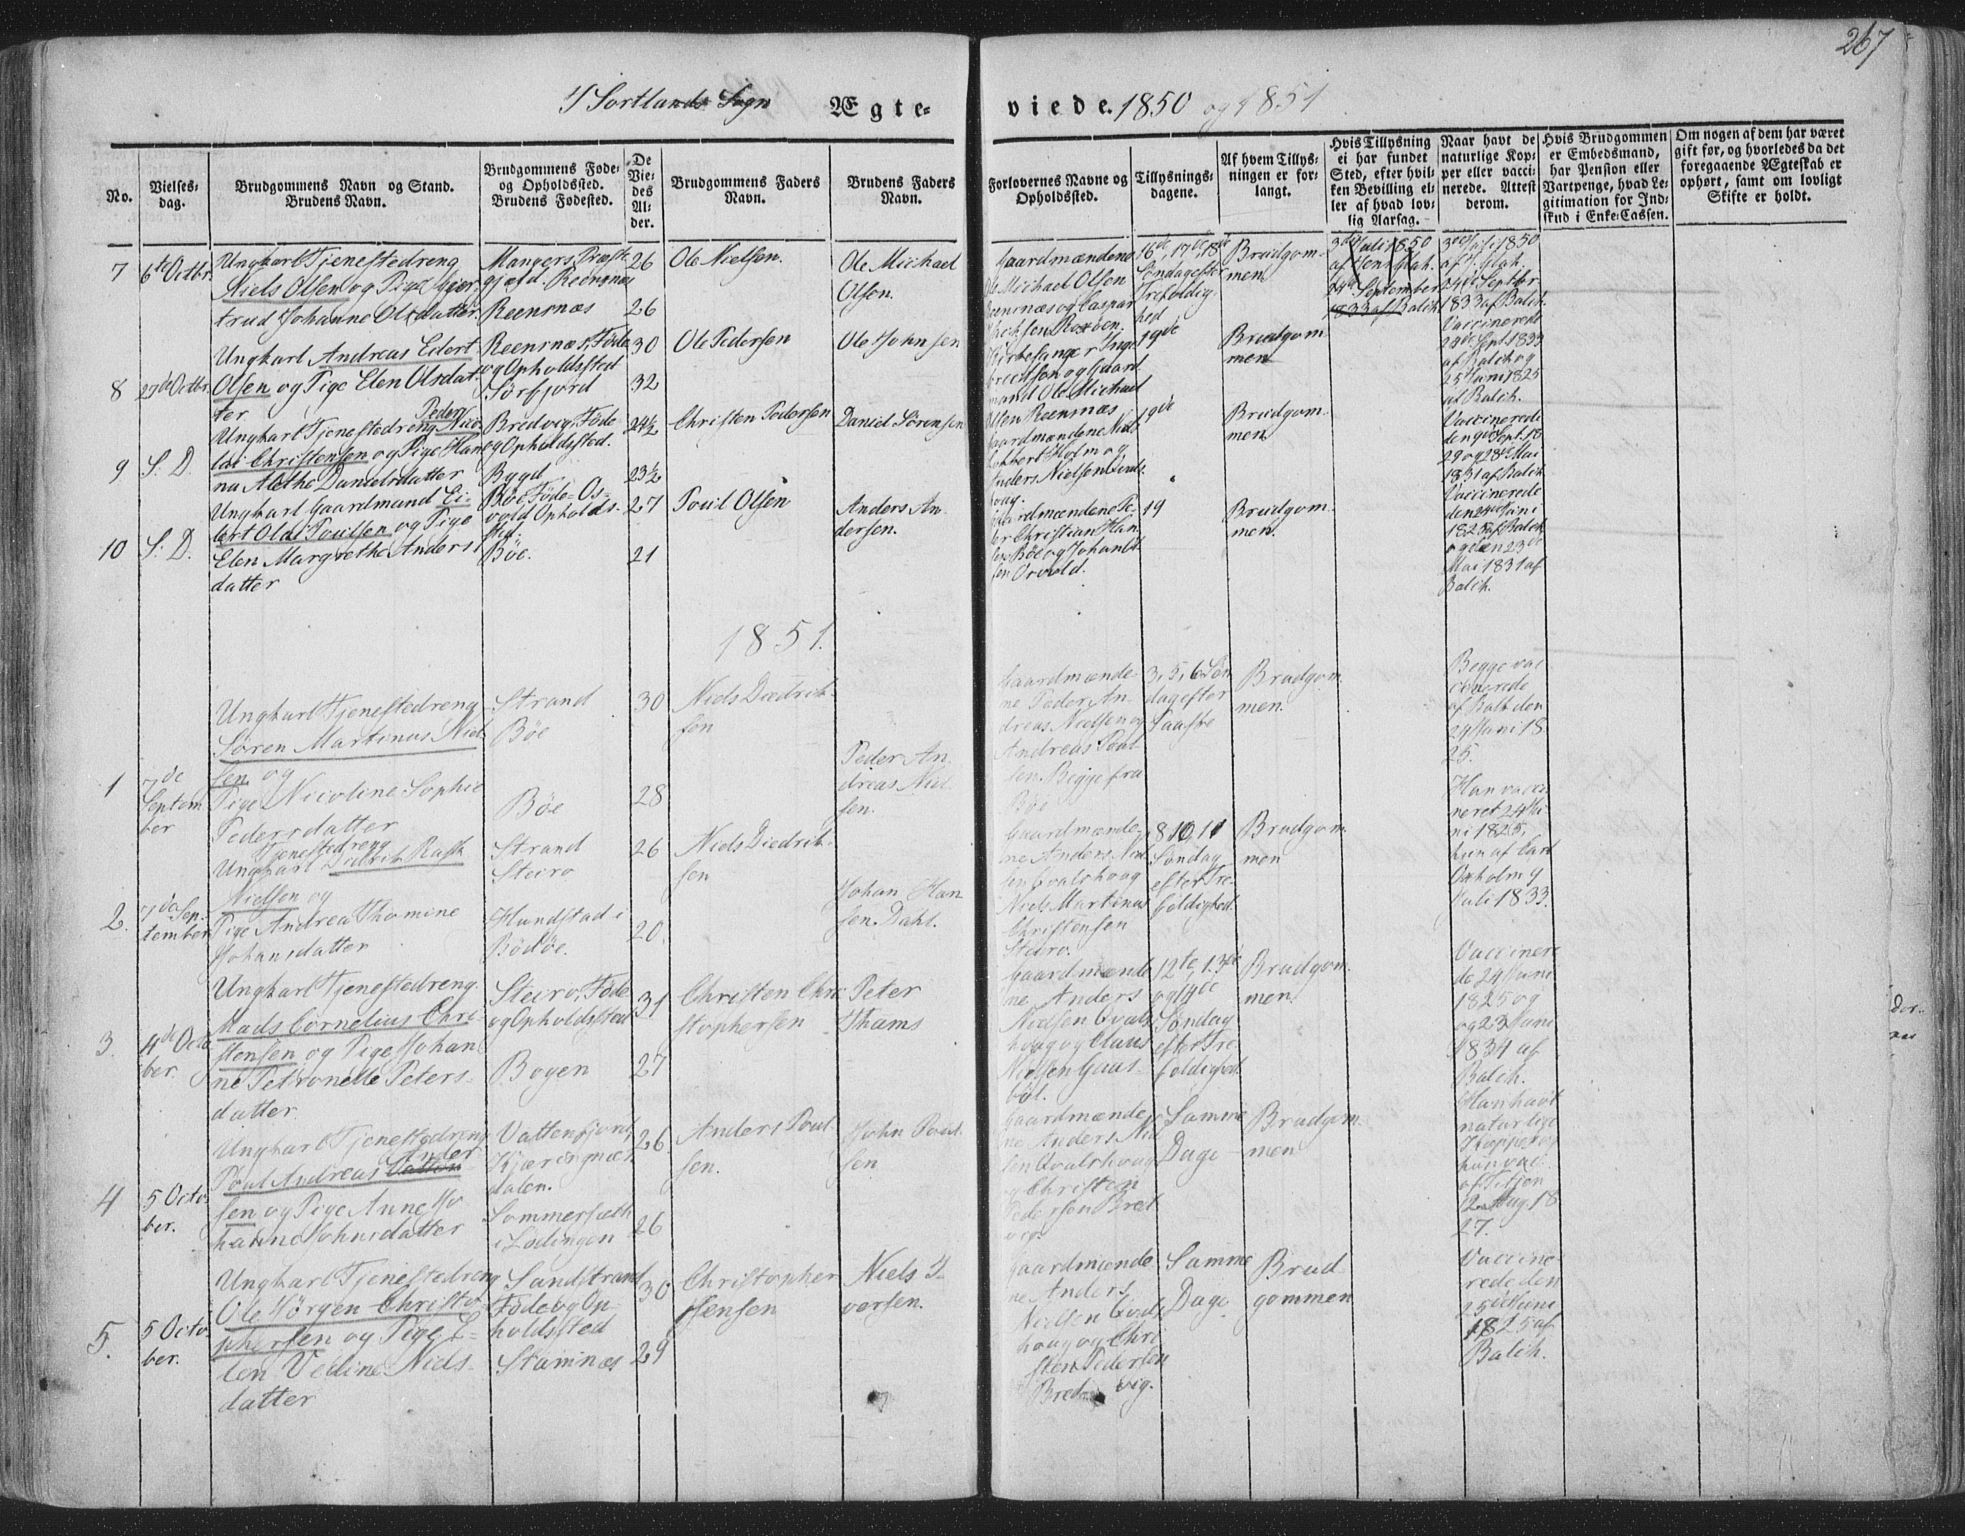 267
I Sortlands Sogn Ægte-
viede. 1850 og 1851
No.
Vielses-
dag.
Brudgommens Navn og Stand.
Brudens Navn.
Brudgommens Føde-
og Opholdssted.
Brudens Fødested.
De
Vie-
des
Al-
der.
Brudgommens Faders
Navn.
Brudens Faders
Navn.
Forlovernes Navne og
Opholdssted.
Tillysnings-
dagene.
Af hvem Tillys-
ningen er for-
langt.
Hvis Tillysning
ei har fundet
Sted, efter hvil-
ken Bevilling el-
ler af hvad lov-
lig Aarsag.
Naar havt de
naturlige Kop-
per eller vacci-
nerede. Attest
derom.
Hvis Brudgommen
er Embedsmand,
har Pension eller
Vartpenge, hvad Le-
gitimation for Ind-
skud i Enke-Cassen.
Om nogen af dem har været
gift før, og hvorledes da det
foregaaende Ægteskab er
ophørt, samt om lovligt
Skifte er holdt.
7
6te Octbr.
Ungkarl Tjenestedreng
Niels Olsen og Pige Gjer-
trud Johanne Olsdatter
Mangers Præste
gjæld. Reensnæs
Reensnæs
26
26
Ole Nielsen.
Ole Michael
Olsen.
Gaardmændene
Ole Michael Olsen
Reensnæs og Caspar
16de, 17de, 18de
Søndag efter
Trefoldig
hed
Brudgom-
men
3die Juli 1850
24de September
1833 af Balch
3die Juli 1850
24de Septbr
1833 af Balch
8
27de Octbr.
Ungkarl Andreas Edert
Olsen og Pige Elen Olsdat
ter
Reensnæs, Føde
og Opholdssted
Sørfjord
30
32
Ole Pedersen
Ole Johnsen
mand Ole Michael
Olsen Reensnæs
19de
Brudgom-
men
Vaccinerede
af Balch og
25 Juni 1825
af Balch.
9
S. D.
Peder
Ungkarl Tjenestedreng Nico-
lai Christensen og Pige Han
na Alethe Danielsdatter
Bredvig, Føde
og Opholdssted.
Bygd
24½
23½
Christen Pedersen
Daniel Sørensen
Gaardmændene Niels
Holm og
Anders Nielsen
19de
Brudgom-
men
Vaccinerede
29 og 28de Mai
1831 af Balch
10
S. D.
Ungkarl Gaardmand Ei-
lert Olai Poulsen og Pige
Elen Margrethe Anders
datter
Bøe Føde- Os-
vold Opholds-
sted.
Bøe.
27
21
Poul Olsen
Anders An
dersen.
Gaardmændene Pe-
der Christian Han
sen Bøe og Johan
sen Osvold.
19
Brudgom-
men.
Vaccinerede
den 24 Juni
1825 af Balch
og den 23de
Mai 1831 af
Balch.
1851.
1
7de
Septem
ber
Ungkarl Tjenestedreng
Søren Martinus Niel
sen og
Pige Nicoline Sophie
Pedersdatter
Strand
Bøe
Bøe
30
28
Niels Diedrik-
sen
Peder An
dreas Niel
sen.
Gaardmænde-
ne Peder An
dreas Nielsen og
Andreas Poul
sen Begge fra
Bøe
3, 5, 6 Søn
dag efter
Paaske
Brudgom
men.
Begge vac
cinerede
af Balch den
24 Juni 18
25.
2.
7de Sep-
tember
Tjenestedreng
Ungkarl Didrik Rask
Nielsen og
Pige Andrea Thomine
Johansdatter
Strand
Steiro
Hundstad i
Bodøe.
26
20.
Niels Diedrik-
sen
Johan Han
sen Dahl.
Gaardmænde-
ne Anders Niel
sen Qvalshaug
Niels Martinus
Christensen
Steiro.
8 10 11
Søndag
efter Tre-
foldighed.
Brudgom
men
Han vacci
neret 24 Ju
ni 1825,
hun af Carl
Oxholm 9
Juli 1833.
3.
4de Octo
ber.
Ungkarl Tjenestedreng
Mads Cornelius Chri-
stensen og Pige Johan
ne Petronelle Peters-
datter
Steiro, Føde
og Opholdssted
Bogen
31
27
Christen Chri
stophersen
Peter
Thams
Gaardmænde
ne Anders
Nielsen Qvals
haug og Claus
Nielsen Gaas-
bøl.
12te 13de
og 14de
Søndag
efter Tre
foldighed.
Brudgom
men
Vaccinere
de 24 Juni
1825 og
og 23 Juni
1834 af
Balch.
4
5 Octo
ber.
Ungkarl Tjenestedreng
Ander
Poul Andreas
sen og Pige Anne Jo
hanne Johnsdatter
Vattenfjord,
Kjæringnæs
dalen.
Sommersæth
i Lodingen
26
26
Anders Poul
sen.
John Poul
sen
Gaardmænde
ne Anders Niel
sen Qvalshaug
og Christen
Pedersen Bred
vig.
Samme
Dage
Brudgom
men
Han havt
naturlige
Kopper og
hun vac.
2 Aug. 18
27.
5.
5 Octo
ber.
Ungkarl Tjenestedreng
Ole Jørgen Christo
phersen og Pige E-
len Vedine Niels-
datter
Sandstrand
Føde og Op-
holdssted
Stamnæs
30
29
Christopher
Jensen
Niels I-
versen.
Gaardmænde
ne Anders
Nielsen Qvals
haug og Chri
sten Pedersen
Bredvig.
Samme
Dage
Brud
gommen
Vaccine-
rede den
25de Juni
1825 af
Balch.